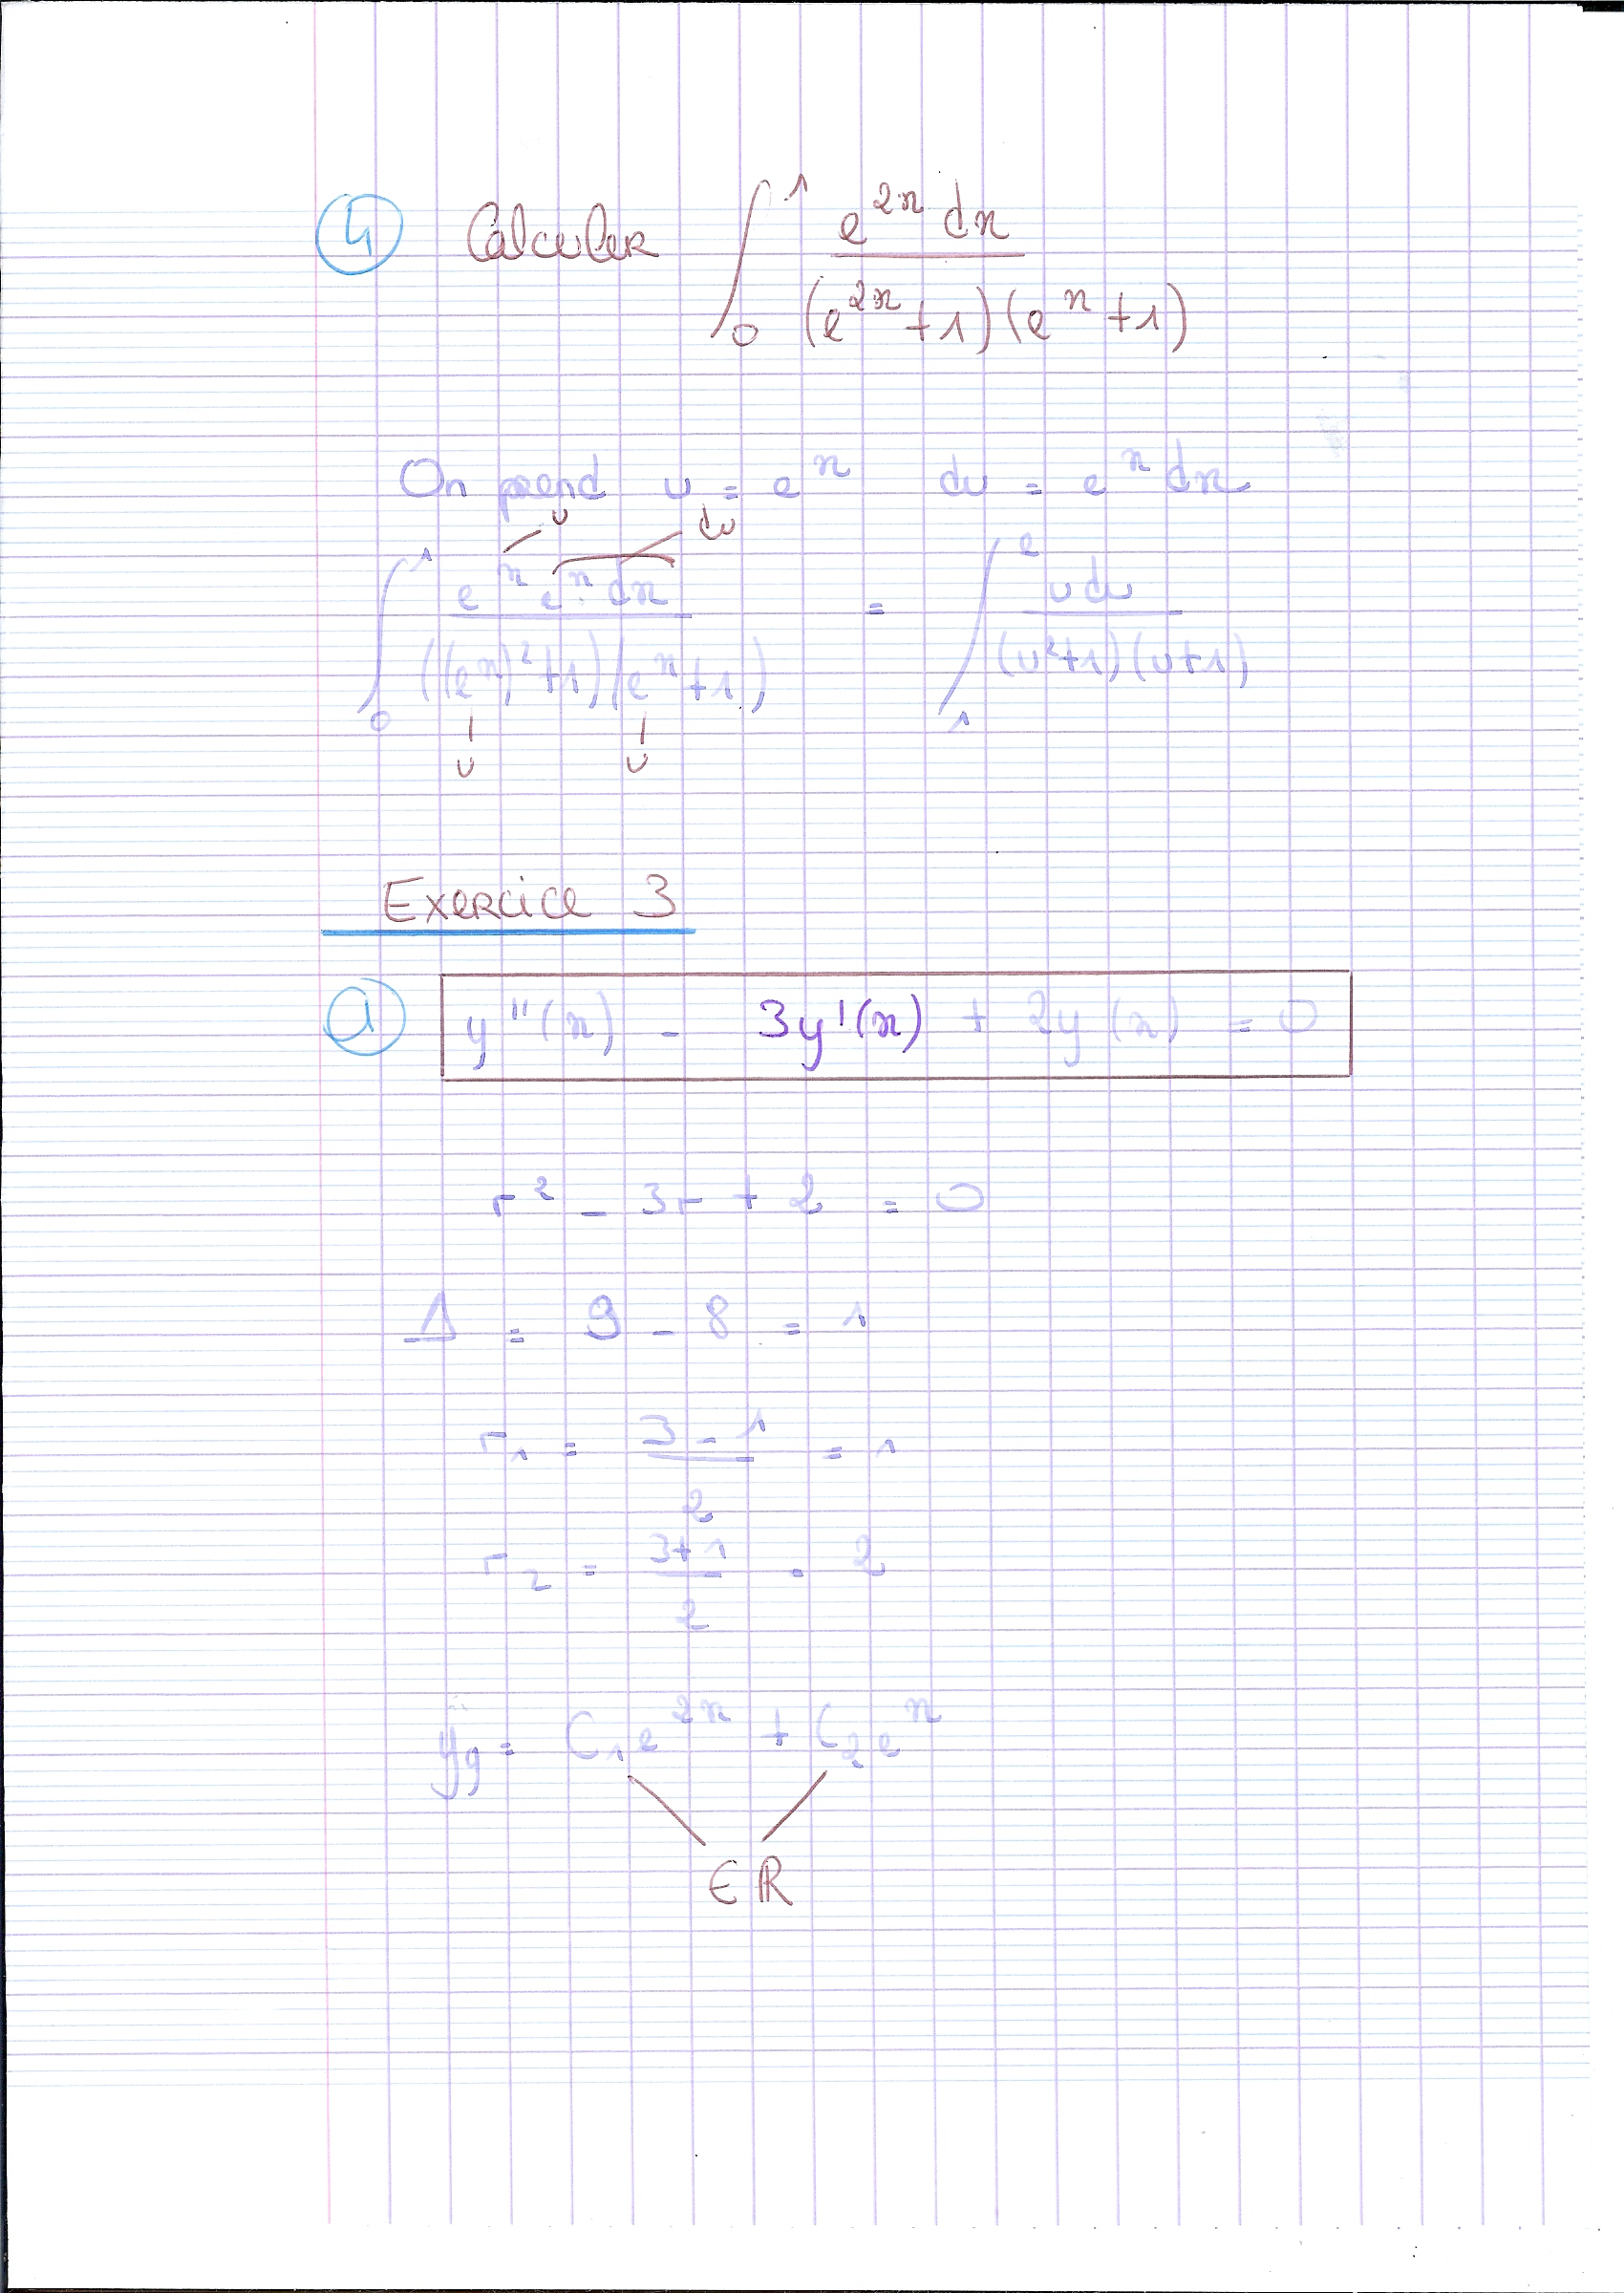 4 Calculer ∫₀¹ e^{2x} dx / (e^{2x}+1)(e^x+1)
On prend u = e^x du = e^x dx
u du
∫₀¹ e^x e^x dx / ((e^x)²+1)(e^x+1) = ∫₁^e u du / (u²+1)(u+1)
u u
Exercice 3
a y''(x) - 3y'(x) + 2y(x) = 0
r² - 3r + 2 = 0
Δ = 9 - 8 = 1
r₁ = (3 - 1)/2 = 1
r₂ = (3+1)/2 = 2
yg = C₁e^{2x} + C₂e^x
∈ ℝ